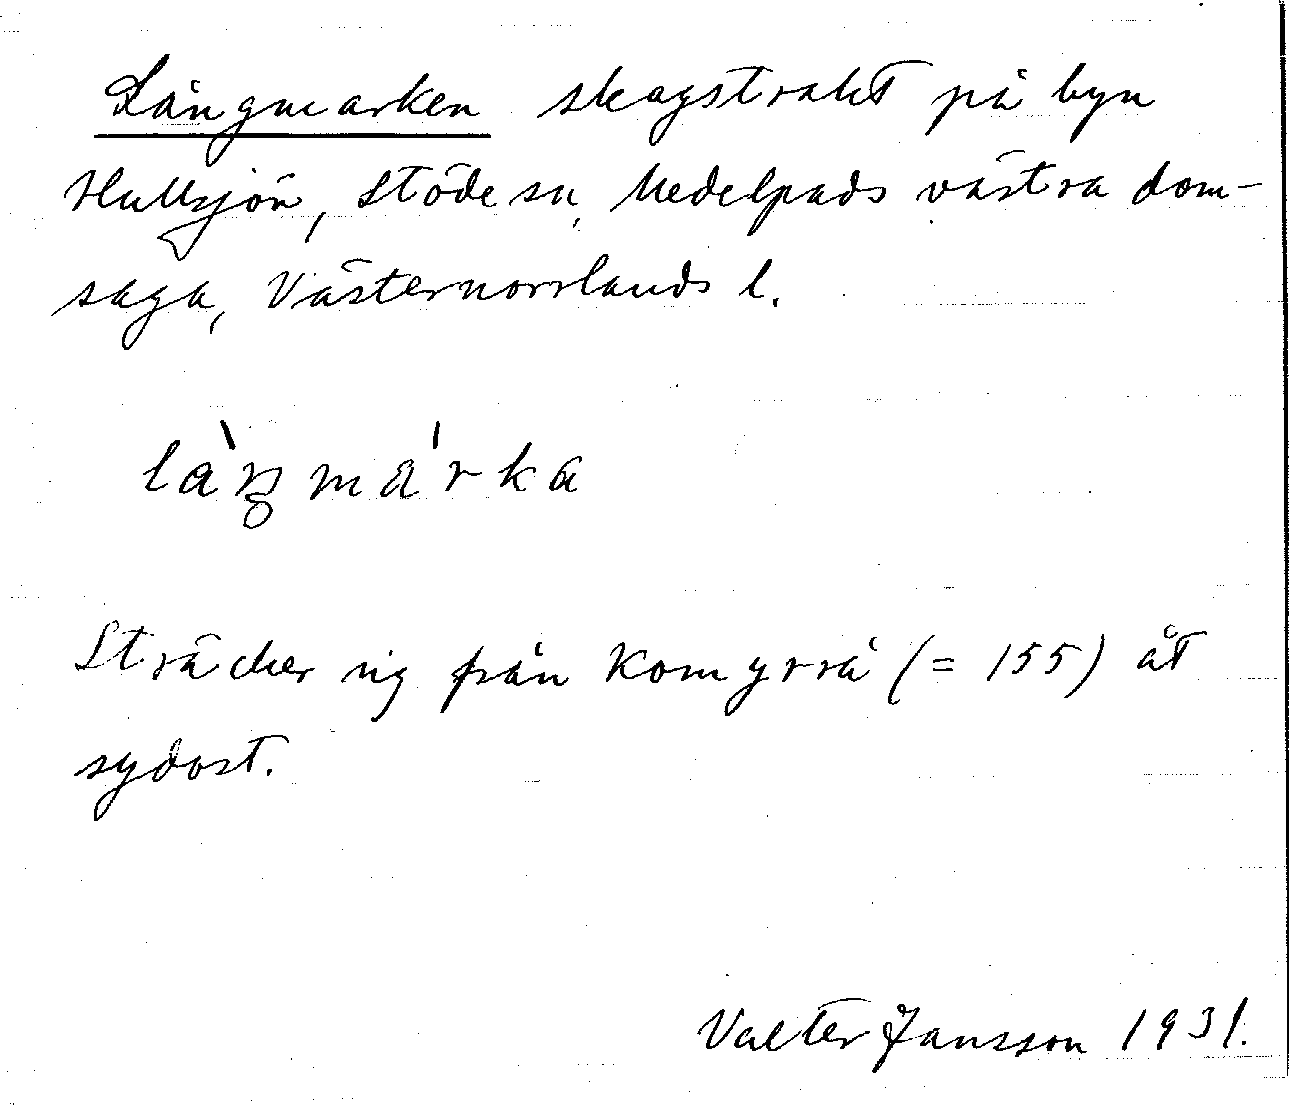 Långmarken skogstrakt på byn
Hullsjön, Stöde sn, Medelpads västra dom-
saga, Västernorrlands l.
Sträcker sig från Komyrrå (= 155) åt
sydost.
Valter Jansson 1931.